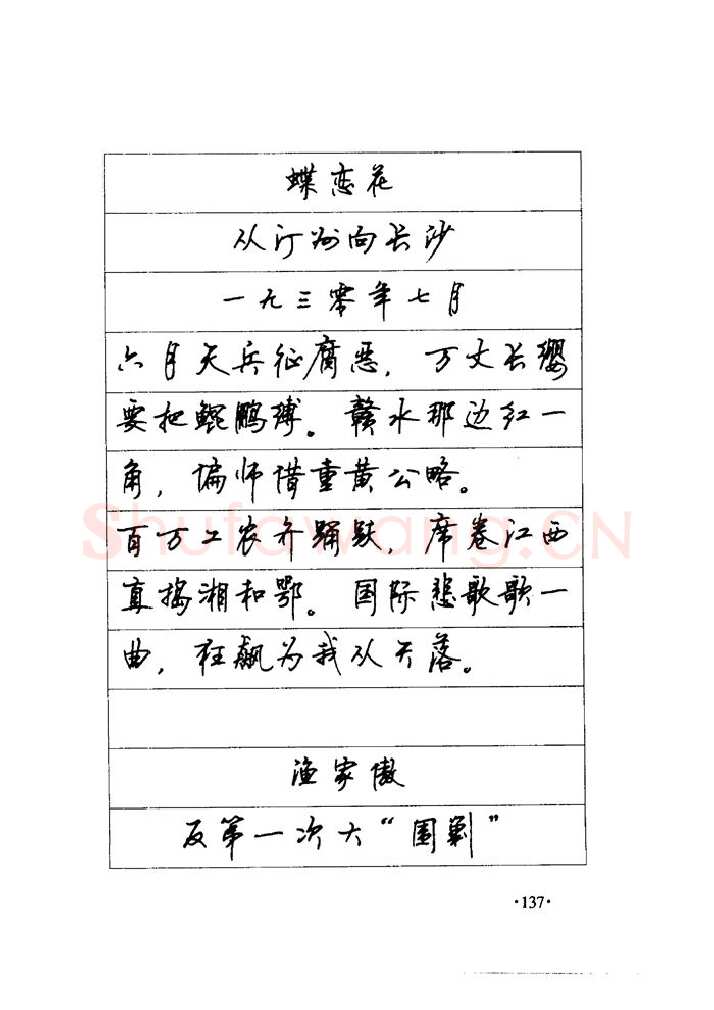 蝶恋花
从汀州向长沙
一九三零年七月
六月天兵征腐恶，万丈长缨
要把鲲鹏缚。赣水那边红一
角，偏师借重黄公略。
百万工农齐踊跃，席卷江西
直捣湘和鄂。国际悲歌歌一
曲，狂飙为我从天落。
渔家傲
反第一次大“围剿”
·137·
Shufawang.CN